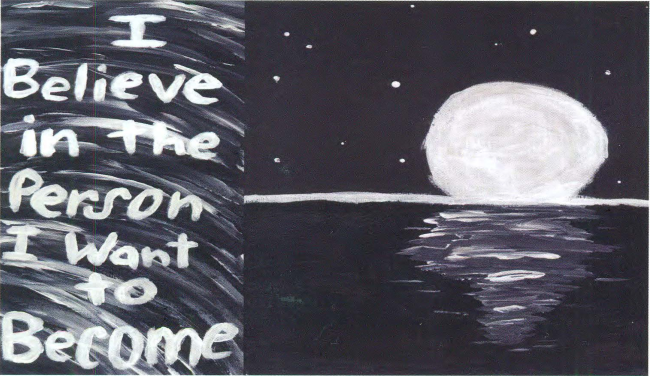 I
Believe
in the
Person
I Want
to
Become